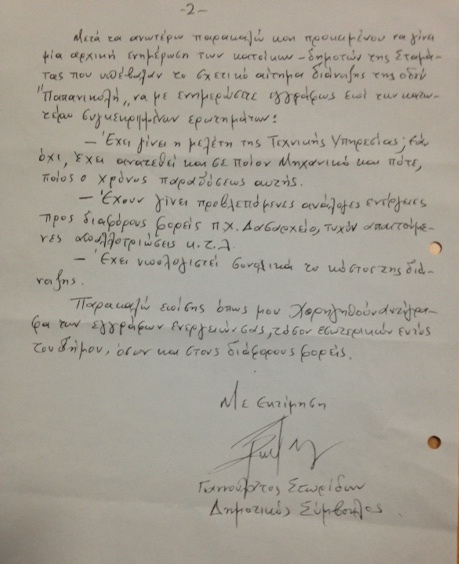 -2-
Μετά τα ανωτέρω παρακαλώ και προκειμένου να γίνει
μία αρχική ενημέρωση των κατοίκων – δημοτών της Σταμά-
τας που υπέβαλαν το σχετικό αίτημα διάνοιξης της οδού
"Παπανικολή", να με ενημερώσετε εγγράφως επί των κατω-
τέρω συγκεκριμένων ερωτημάτων:
– Έχει γίνει η μελέτη της Τεχνικής Υπηρεσίας; εάν
όχι, έχει ανατεθεί και σε ποίον Μηχανικό και πότε,
ποίος ο χρόνος παραδόσεως αυτής.
– Έχουν γίνει προβλεπόμενες ανάλογες ενέργειες
προς διαφόρους φορείς π.χ. Δασαρχείο, τυχόν απαιτούμε-
νες απαλλοτριώσεις κ.τ.λ.
– Έχει υπολογιστεί συνολικά το κόστος της διά-
νοιξης.
Παρακαλώ επίσης όπως μου χορηγηθούν αντίγρα-
φα των εγγράφων ενεργειών σας, τόσον εσωτερικών εντός
του Δήμου, όσον και στους διάφορους φορείς.
Με εκτίμηση
Γιαννουλάτος Σπυρίδων
Δημοτικός Σύμβουλος.